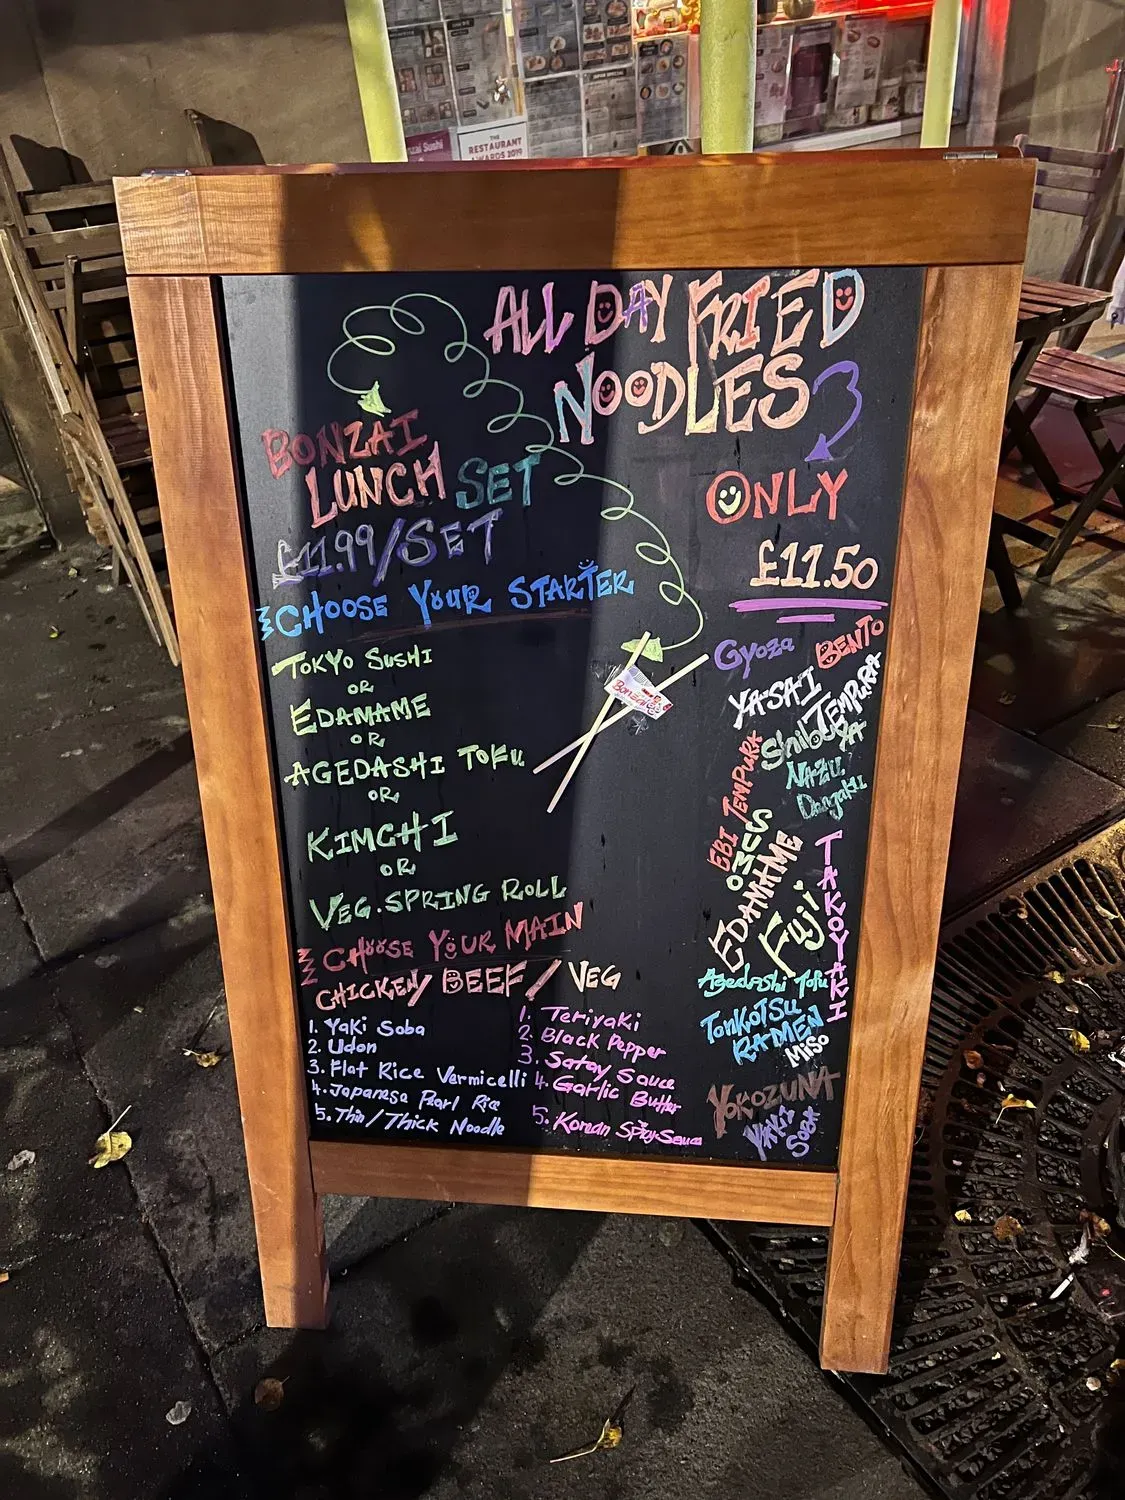 THE
RESTAURANT
AWARDS 2019
ALL DAY FRIED
NOODLES
ONLY
£11.50
BONZAI
LUNCH SET
£11.99/SET
CHOOSE YOUR STARTER
TOKYO SUSHI
OR
EDAMAME
OR
AGEDASHI TOFU
OR
KIMCHI
OR
VEG. SPRING ROLL
CHOOSE YOUR MAIN
CHICKEN/ BEEF / VEG
1. Yaki Soba
2. Udon
3. Flat Rice Vermicelli
4. Japanese Pearl Rice
5. Thin/Thick Noodle
1. Teriyaki
2. Black Pepper
3. Satay Sauce
4. Garlic Butter
5. Korean Spicy Sauce
Gyoza
BENTO
YA-SAI
TEMPURA
EBI TEMPURA
SUMO
EDAMAME
Fuji
TAKOYAKI
Agedashi Tofu
TONKOTSU
RAMEN
Miso
YOKOZUNA
YAKI
Soba